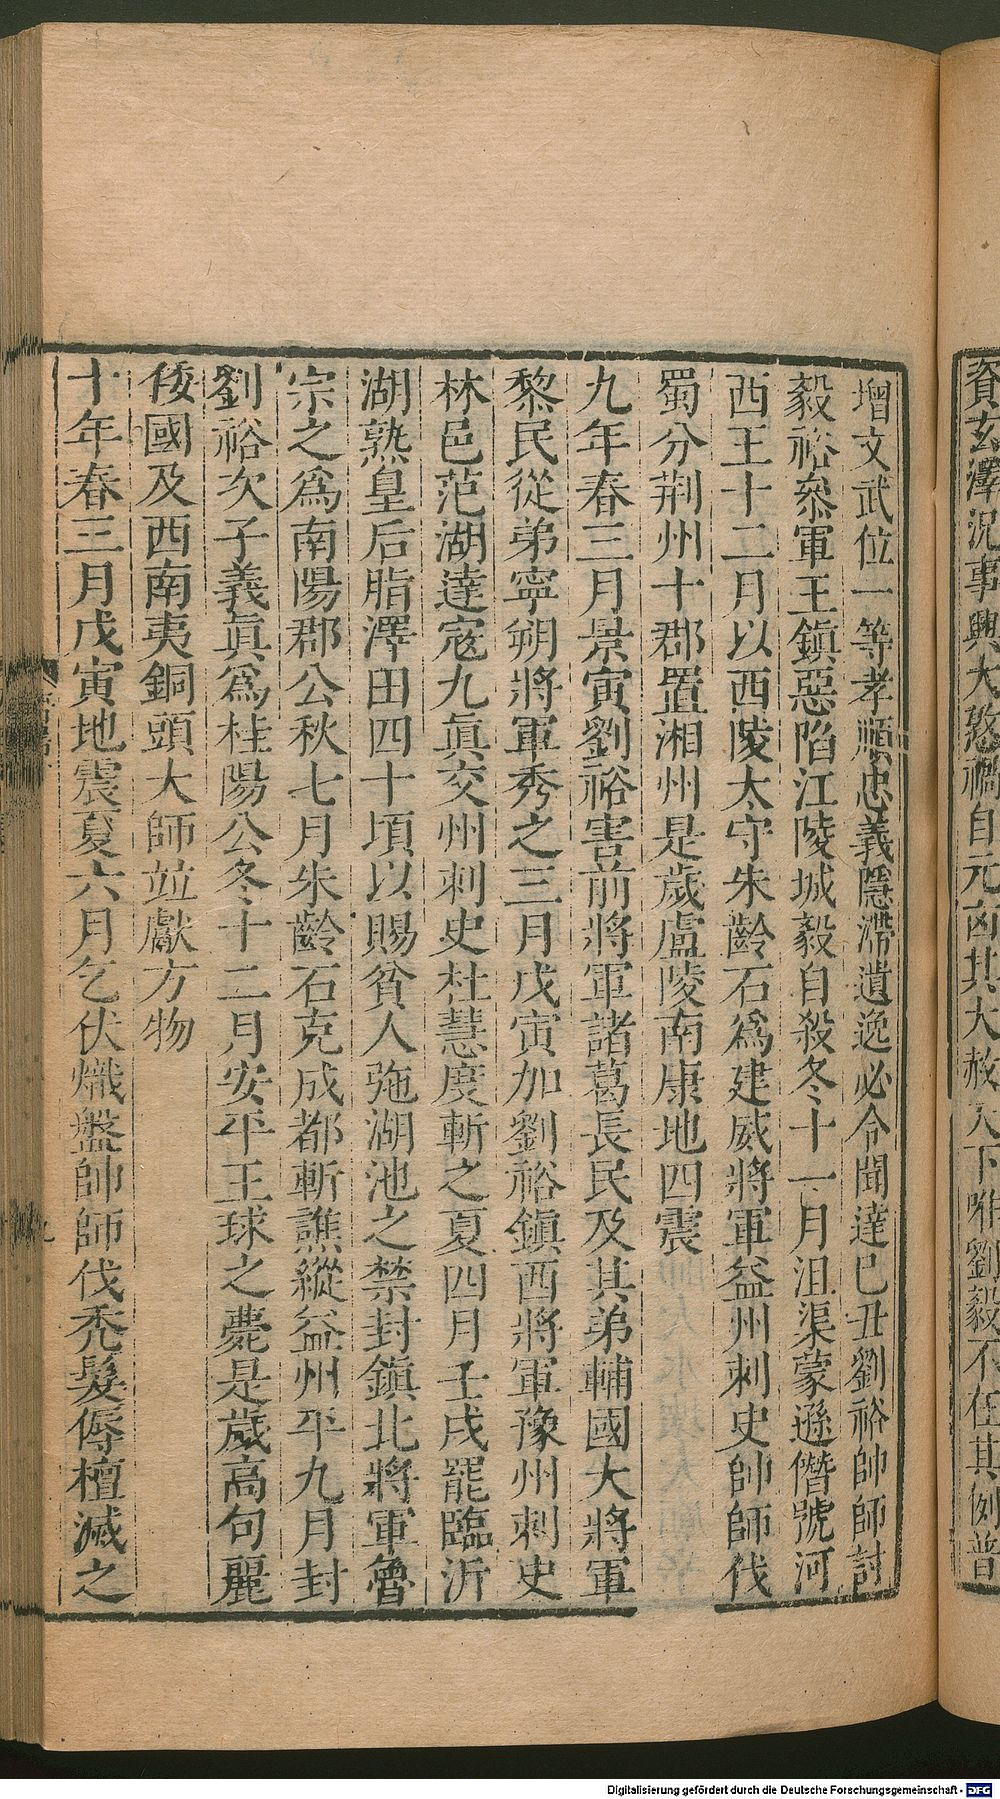 資玄澤況事興大憝禍自元凶其大赦天下唯劉毅不在其例普
增文武位一等孝順忠義隱滯遺逸必令聞達巳丑劉裕帥師討
毅裕叅軍王鎮惡陷江陵城毅自殺冬十一月沮渠蒙遜僭號河
西王十二月以西陵太守朱齡石爲建威將軍益州刺史帥師伐
蜀分荆州十郡置湘州是歲盧陵南康地四震
九年春三月景寅劉裕害前將軍諸葛長民及其弟輔國大將軍
黎民從弟寧朔將軍秀之三月戊寅加劉裕鎮西將軍豫州刺史
林邑范湖達寇九眞交州刺史杜慧度斬之夏四月壬戌罷臨沂
湖熟皇后脂澤田四十頃以賜貧人弛湖池之禁封鎮北將軍魯
宗之爲南陽郡公秋七月朱齡石克成都斬譙縱益州平九月封
劉裕次子義眞爲桂陽公冬十二月安平王球之薨是歲高句麗
倭國及西南夷銅頭大師竝獻方物
十年春三月戊寅地震夏六月乞伏熾盤帥師伐禿髮傉檀滅之
Digitalisierung gefördert durch die Deutsche Forschungsgemeinschaft - DFG